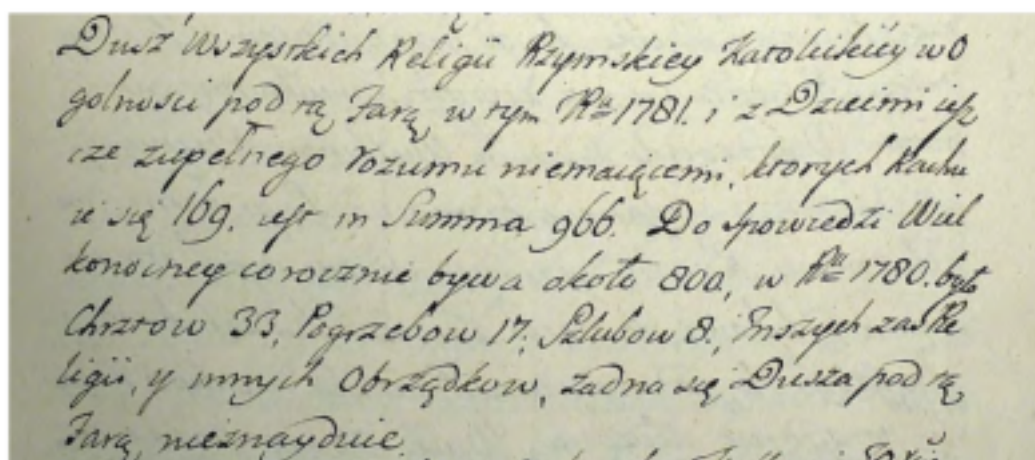 Dusz Wszystkich Religii Rzymskiey Katolickiey w O
golnosci pod tą Farą w tym Ru 1781. i z Dziecmi iesz
cze zupełnego rozumu niemaiącemi, ktorych Rachu
ie się 169. iest in Summa 966. Do Spowiedzi Wiel
konocney corocznie bywa około 800, w Ru 1780. było
Chrztow 33, Pogrzebow 17, Szlubow 8, Inszych zas Re
ligii, y innych Obrządkow, żadna się Dusza pod tą
Farą nieznayduie.